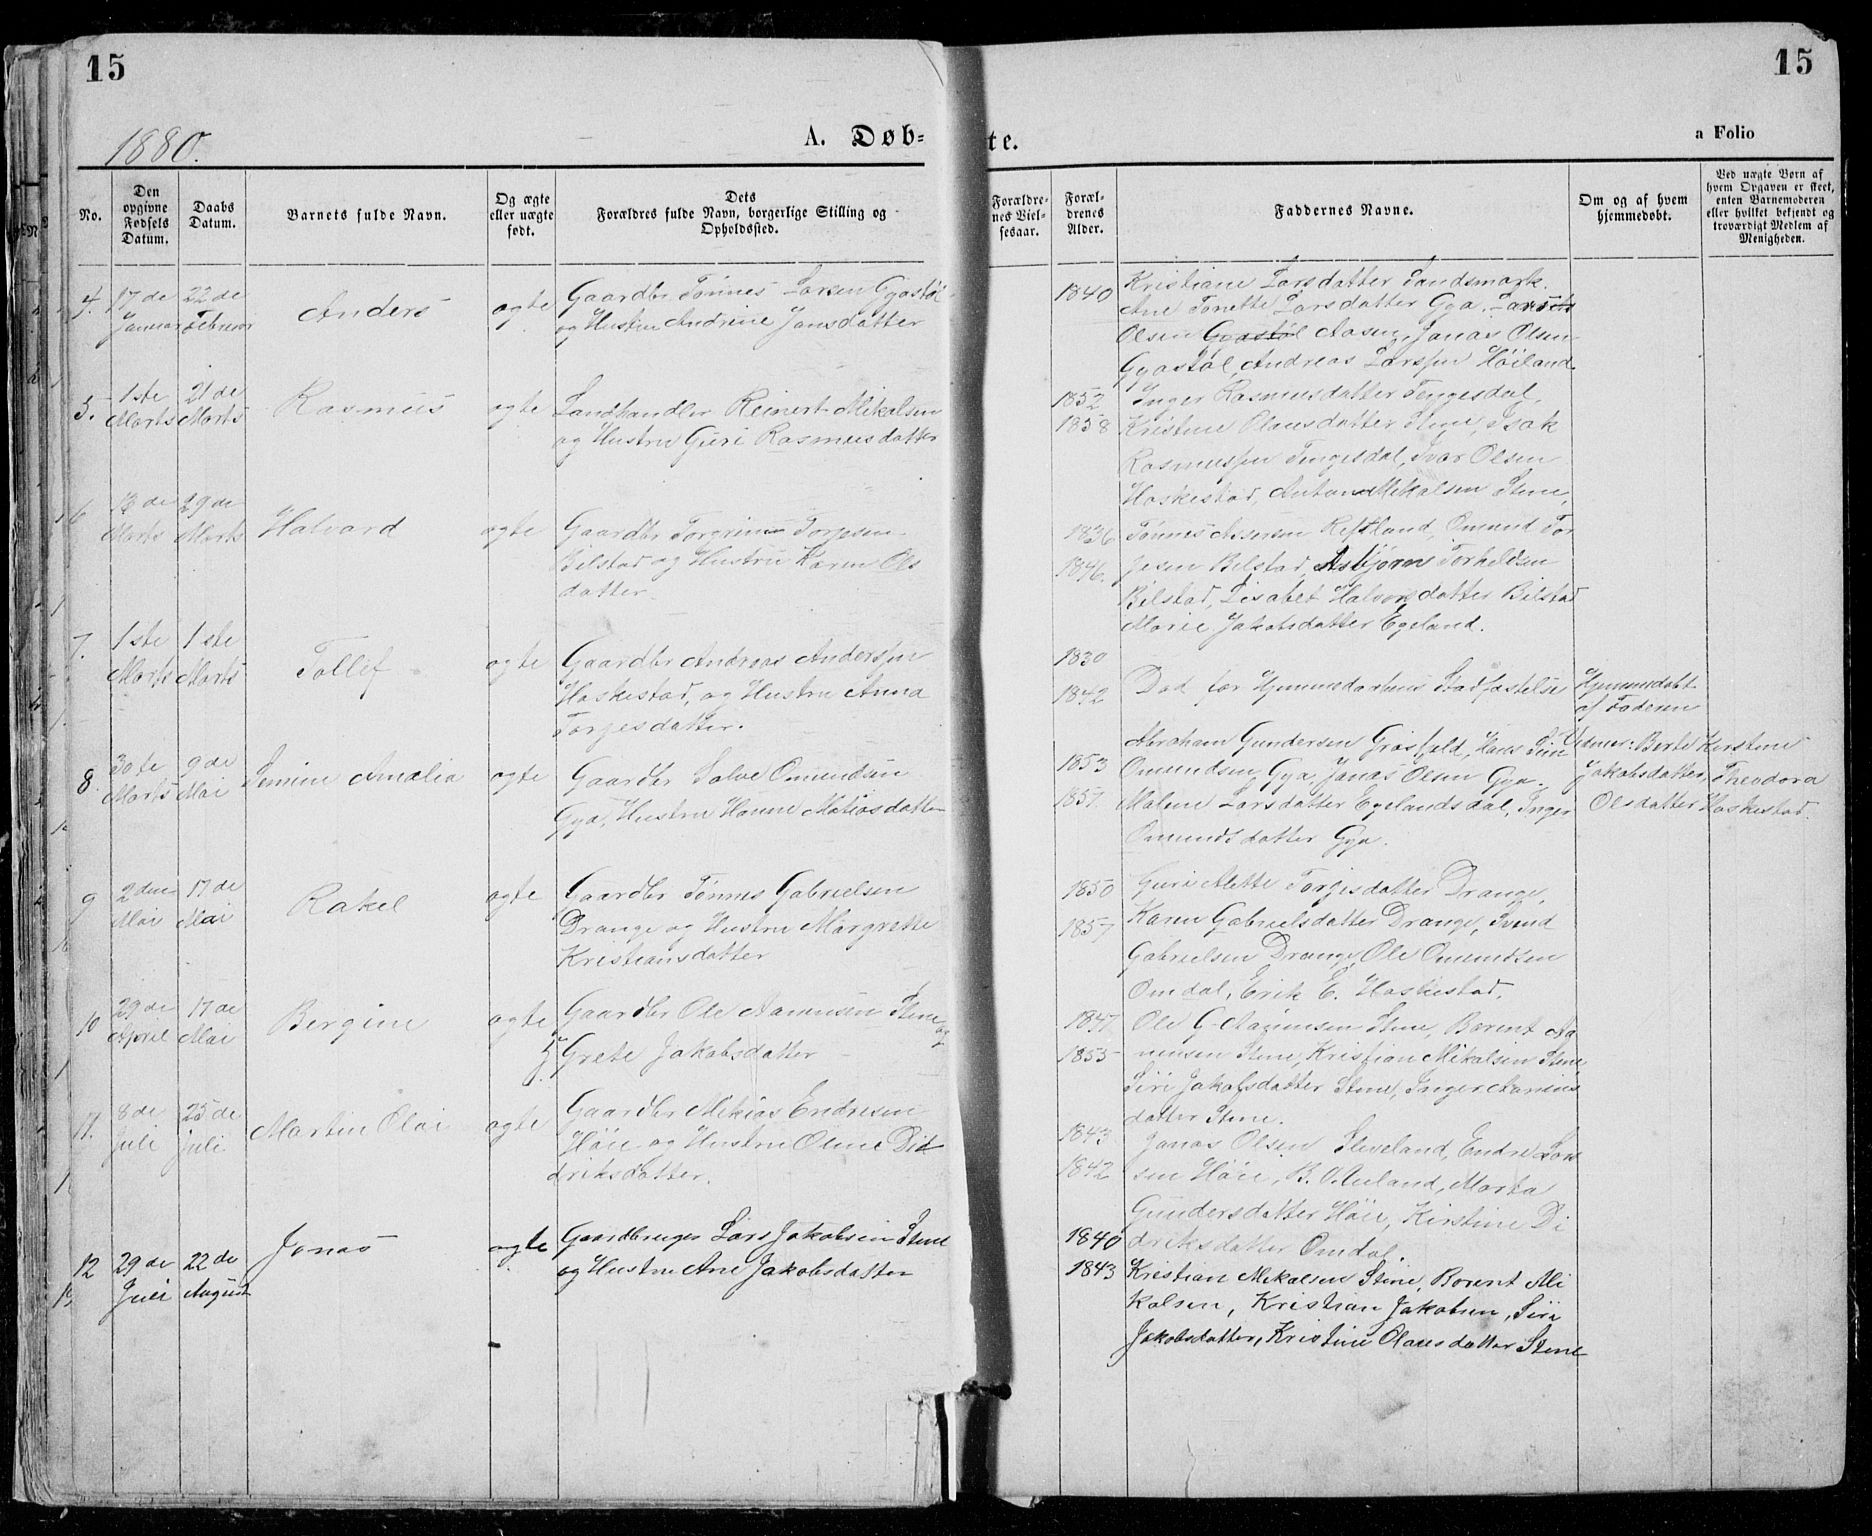 15
15
1880.
A. Døb-
te.
a Folio
No.
Den opgivne Fødsels Datum.
Daabs Datum.
Barnets fulde Navn.
Og ægte eller uægte født.
Dets Forældres fulde Navn, borgerlige Stilling og Opholdssted.
Forældrenes Vielsesaar.
Forældrenes Alder.
Faddernes Navne.
Om og af hvem hjemmedøbt.
Ved uægte Børn af hvem Opgaven er skeet, enten Barnemoderen eller hvilket bekjendt og troværdigt Medlem af Menigheden.
4. 17de Januar 22de Februar Anders ægte
Gaardbr Tønnes Larsen Gyastøl
og Hustru Andrine Jansdatter
1840
Kristiane Larsdatter Sandsmark.
Ane Tonette Larsdatter Gya,
Olsen Gyastøl Aasen, Janas Olsen
Gyastøl, Andreas Larssen Høiland.
5. 1ste Marts 21de Marts Rasmus ægte
Landhandler Reinert Mikalsen
og Hustru Guri Rasmusdatter
1852
1858
Inger Rasmusdatter Tengesdal,
Kristine Olausdatter Stene, Isak
Rasmussen Tengesdal, Ivar Olsen
Haskestad, Anton Mikalsen Stene,
6 29de Marts Marts Halvard ægte
Gaardbr Torgrim Torjesen
Bilstad og Hustru Karen Ols
datter.
1836
1846.
Tønnes Assersen Refsland, Omund Tor
jesen Bilstad, Asbjørn Torkeldsen
Bilstad, Lisabet Halvorsdatter Bilstad
Marie Jakobsdatter Egeland.
7. 1ste Marts 1ste Marts Tollef ægte
Gaardbr Andreas Anderssen
Haskestad, og Hustru Anna
Torjesdatter.
1830
1842
Død før Hjemmedaabens Stadfæstelse
Hjemmedøbt
af Faderen
Vidner: Berte Kirstine
Jakobsdatter, Theodora
Olsdatter Haskestad.
8. 30te Marts 9de Mai Semine Amalia ægte
Gaardbr Salve Omundsen
Gya, Hustru Hanne Matiasdatter
1853
1857.
Abraham Gundersen Grøsfjeld, Hans
Omundsen Gya, Janas Olsen Gya.
Malene Larsdatter Egelandsdal, Inger
Omundsdatter Gya.
9 2den Mai 17de Mai Rakel ægte
Gaardbr Tønnes Gabrielsen
Drange og Hustru Margrette
Kristiansdatter
1850
1857
Guri Alette Torjesdatter Drange,
Karen Gabrielsdatter Drange, Svend
Gabrielsen Drange, Ole Omundsen
Omdal, Erik E. Haskestad.
10 29de April 17de Mai Bergine ægte
Gaardbr Ole Aanensen Stene og
H. Grete Jakobsdatter
1847
1855
Ole G. Aanensen Stene, Barent Aa
nensen Stene, Kristian Mikalsen Stene
Siri Jakobsdatter Stene, Inger Aanens
datter Stene.
11. 8de Juli 25de Juli Martin Olai ægte
Gaardbr Mikias Endresen
Høie og Hustru Oline Did
driksdatter.
1843
1842
Janas Olsen Sleveland, Endre Lar
sen Høie, B. O. Auland, Marta
Gundersdatter Høie, Kirstine Di
driksdatter Omdal.
12 29de Juli 22de August Jonas ægte
Gaardbruger Lars Jakobsen Stene
og Hustru Ane Jakobsdatter
1840
1843
Kristian Mikalsen Stene, Barent Mi
kalsen, Kristian Jakobsen, Siri
Jakobsdatter, Kristine Olausdatter Stene